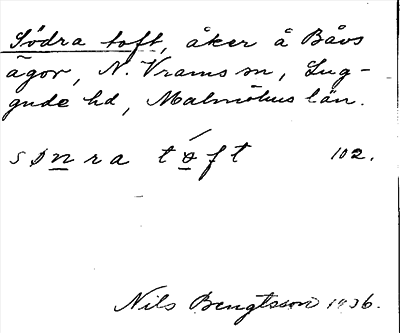 Södra toft, åker å Båvs
ägor, N. Vrams sn, Lug-
gude hd, Malmöhus län.
sønra tóft 102.
Nils Bengtsson 1936.